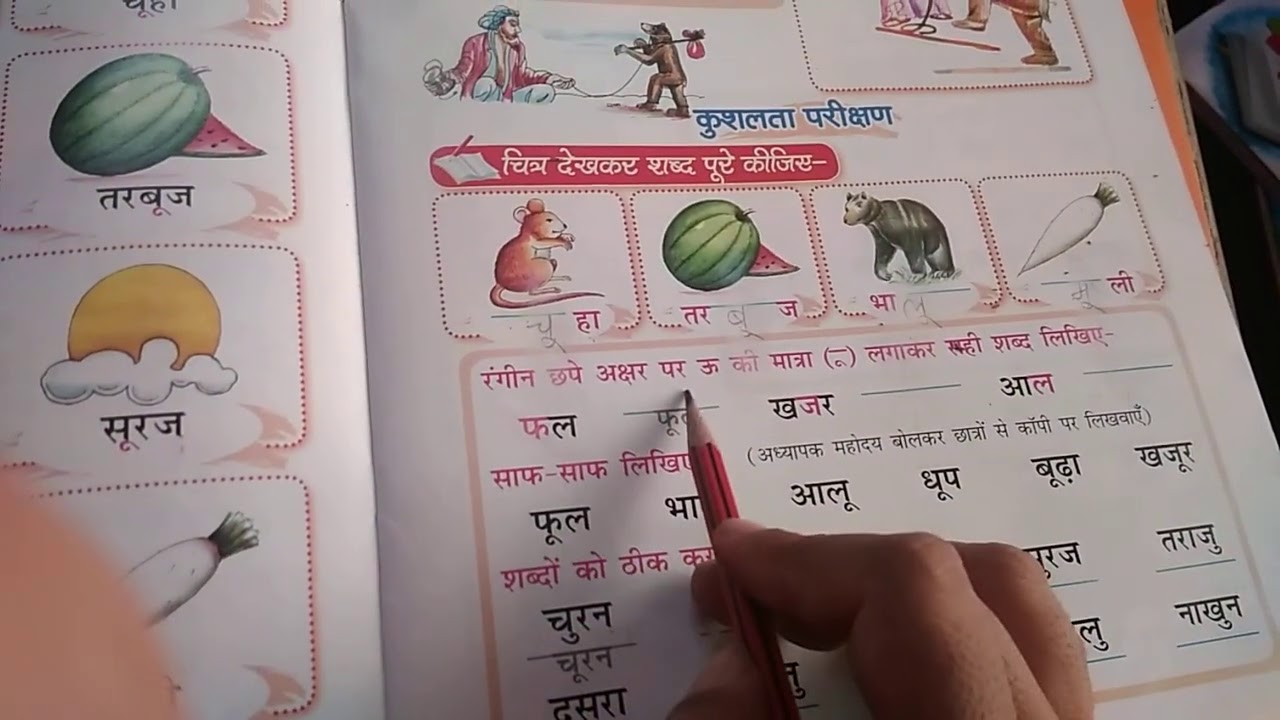 चूहा
तरबूज
सूरज
कुशलता परीक्षण
चित्र देखकर शब्द पूरे कीजिए–
चू हा
तर बू ज
भा लू
मू ली
रंगीन छपे अक्षर पर ऊ की मात्रा (ू) लगाकर सही शब्द लिखिए–
फल खजर आल
साफ-साफ लिखिए (अध्यापक महोदय बोलकर छात्रों से कॉपी पर लिखवाएँ)
फूल आलू धूप बूढ़ा खजूर
शब्दों को ठीक
चुरन तराजु
चूरन
नाखुन
दुसरा